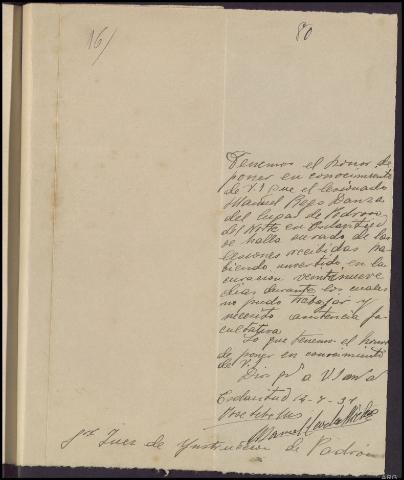 16/
80
Tenemos el honor de
poner en conocimiento
de V.I que el lesionado
Manuel Rego Danza
del lugar de
del Norte en
se halla curado de las
lesiones recibidas ha-
biendo invertido en la
curación veintinueve
dias durante los cuales
no pudo trabajar y
necesitó asistencia fa-
cultativa
Lo que tenemos el honor
de poner en conocimiento
de V.I
Dios gue a V.I
14-9-37
Manuel
Sr Juez de Ynstrucción de Padrón
ARG